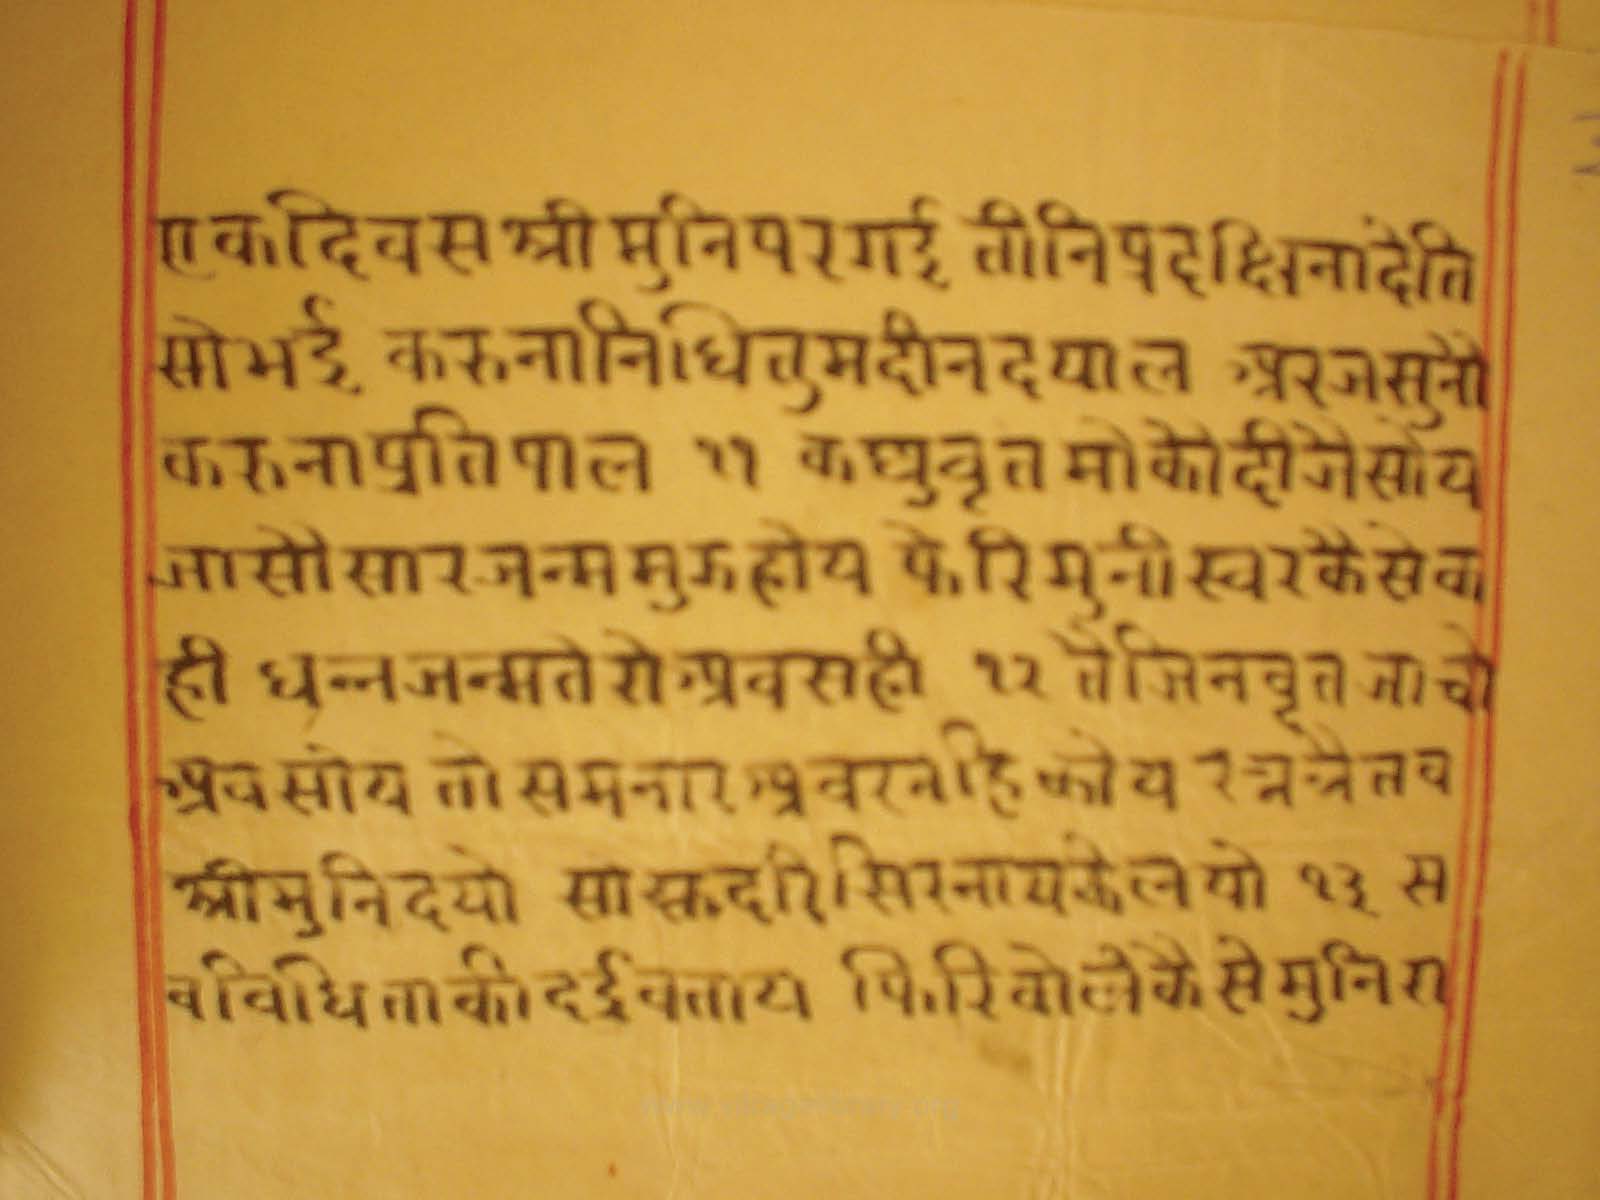 एकदिवसश्रीमुनिपरगई तीनिप्रदक्षिनादेति
सोभई करुनानिधितुमदीनदयाल अरजसुनौ
करुनाप्रतिपाल ११ कछुव्रृतमोकोदीजैसोय
जासौसारजन्ममुझहोय फेरिमुनीस्वरकैसेक
ही धन्नजन्मतेरोअवसही १२ तैजिनवृतजाचो
अवसोय तोसमनारअवरनहिकोय रत्नत्रैतव
श्रीमुनिदयो सोसुंदरिसिरनायकेलयो १३ स
वविधिताकीदईवताय फिरिवोलेकैसेमुनिरा
www.jainelibrary.org